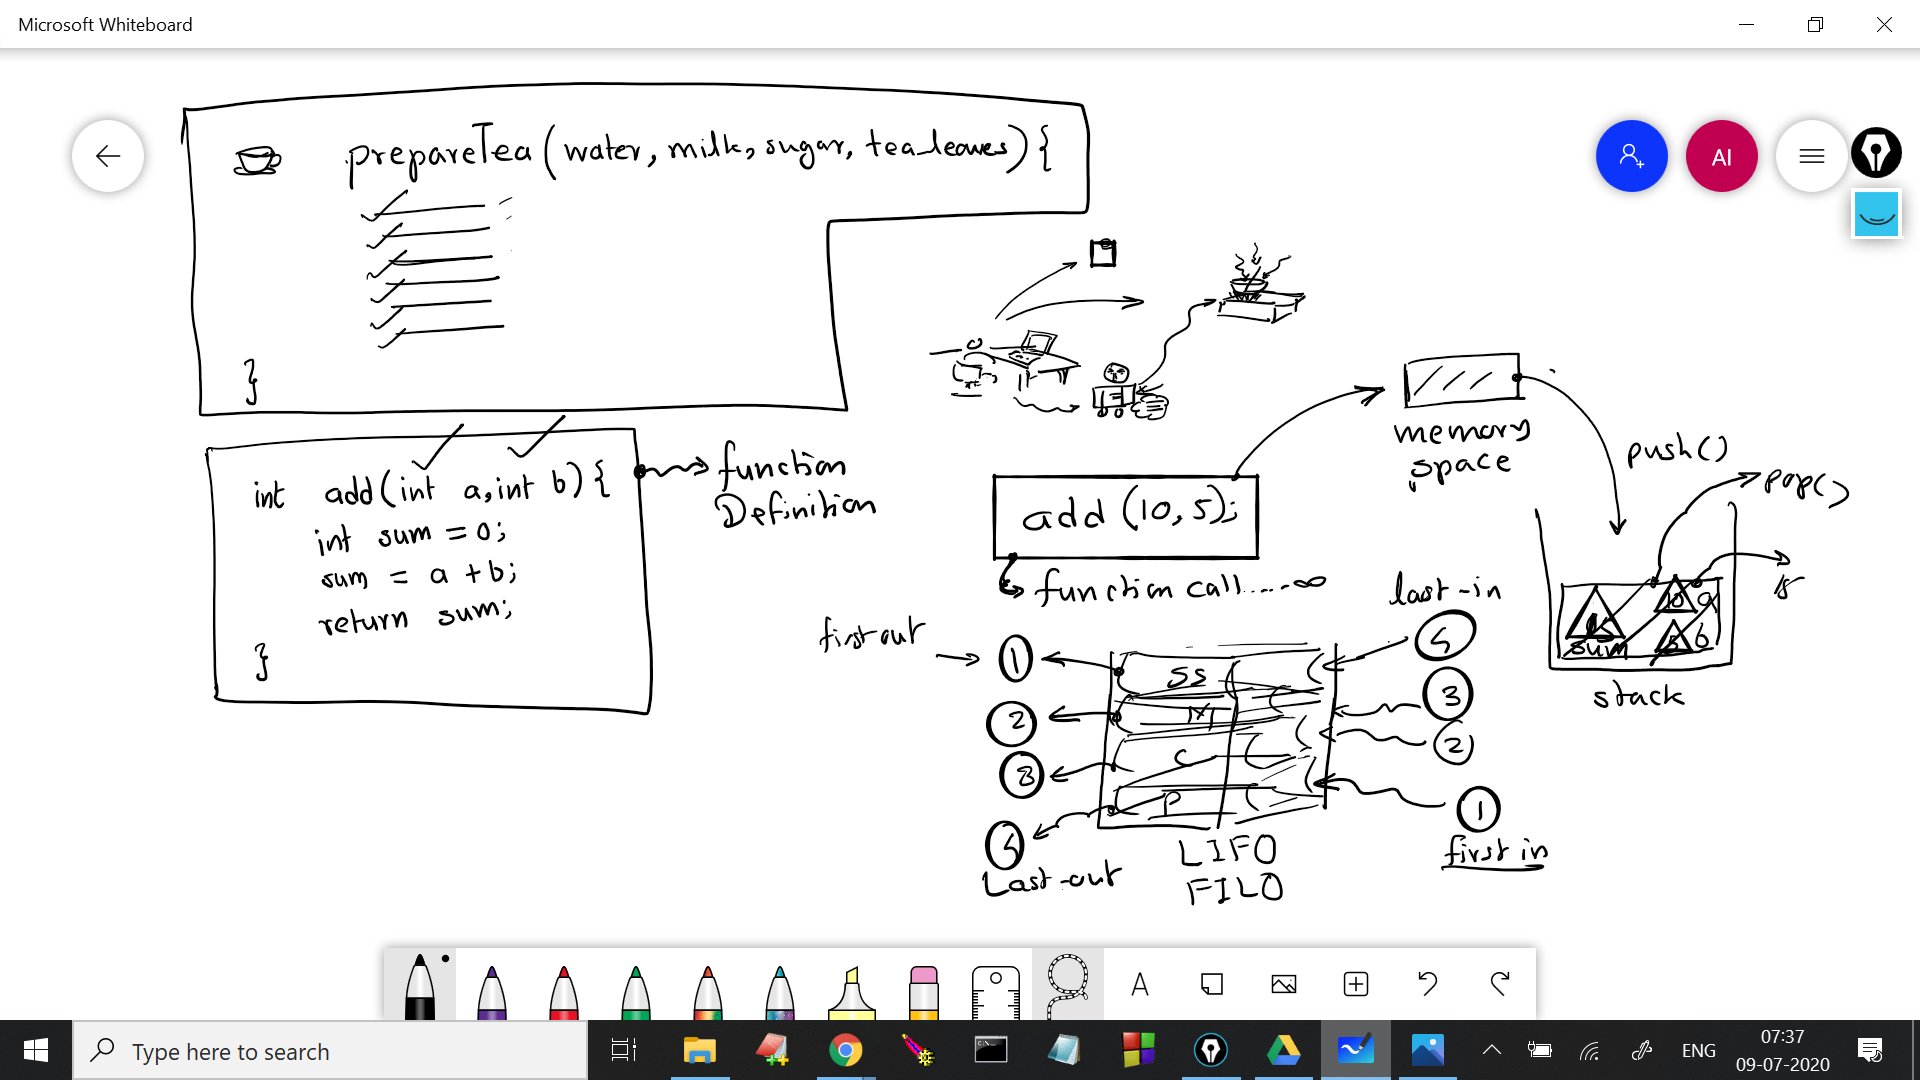 Microsoft Whiteboard
AI
prepareTea(water, milk, sugar, tea_leaves){
}
int add(int a, int b){
int sum = 0;
sum = a + b;
return sum;
}
function
Definition
add(10,5);
function call
memory
space
push()
pop()
15
10 a
15
5 b
sum
stack
first out
last-in
1
SS
4
2
M
3
3
C
2
4
P
1
Last-out
first in
LIFO
FILO
Type here to search
ENG
07:37
09-07-2020